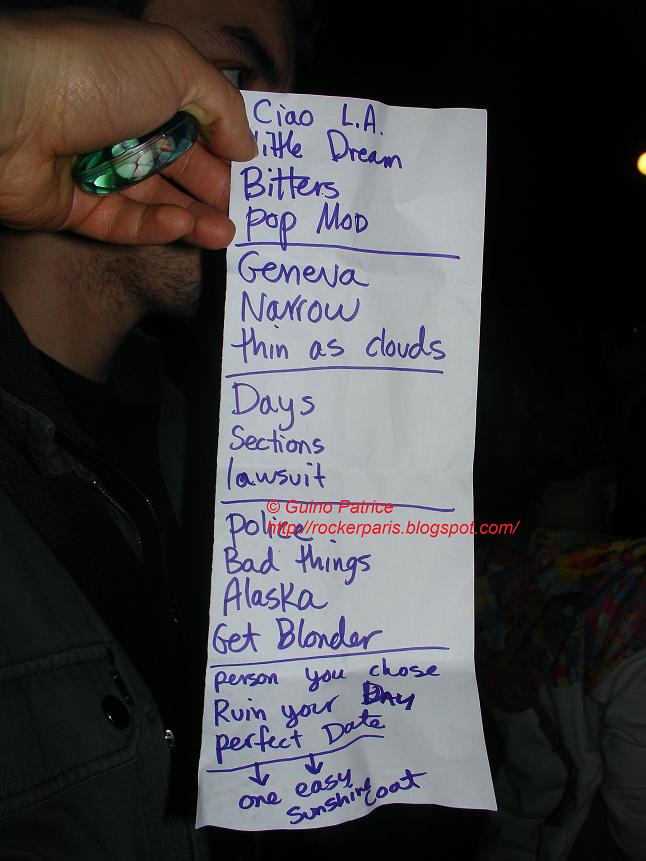 Ciao L.A.
little Dream
Bitters
Pop Mod
Geneva
Narrow
thin as clouds
Days
Sections
lawsuit
© Guino Patrice
http://rockerparis.blogspot.com/
police
Bad things
Alaska
Get Blonder
person you chose
Ruin your Day
perfect Date
one easy
Sunshine Coat